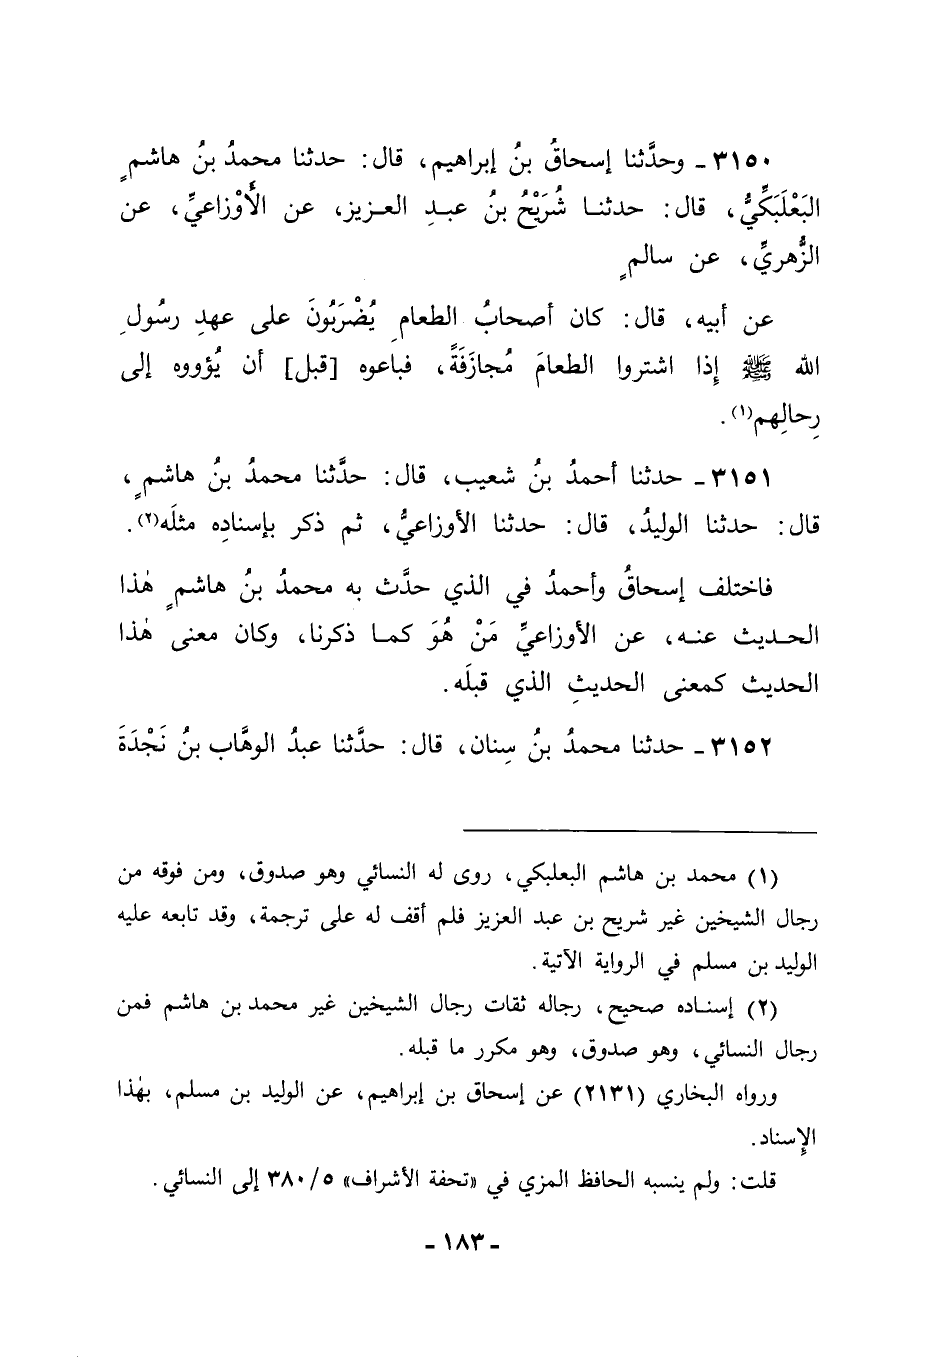 ٣١٥٠ ـ وحدَّثنا إسحاقُ بنُ إبراهيم، قال: حدثنا محمدُ بنُ هاشمٍ
البَعْلَبَكِّيُّ، قال: حدثنا شُرَيْحُ بنُ عبدِ العزيز، عن الأَوْزاعيِّ، عن
الزُّهريِّ، عن سالمٍ
عن أبيه، قال: كان أصحابُ الطعامِ يُضْرَبُونَ على عهدِ رسُولِ
الله ﷺ إِذا اشتروا الطعامَ مُجازَفَةً، فباعوه [قبل] أن يُؤووه إلى
رِحالِهم(١).
٣١٥١ ـ حدثنا أحمدُ بنُ شعيب، قال: حدَّثنا محمدُ بنُ هاشمٍ،
قال: حدثنا الوليدُ، قال: حدثنا الأوزاعيُّ، ثم ذكر بإسنادِه مثلَه(٢).
فاختلف إسحاقُ وأحمدُ في الذي حدَّث به محمدُ بنُ هاشمٍ هٰذا
الحديث عنه، عن الأوزاعيِّ مَنْ هُوَ كما ذكرنا، وكان معنى هٰذا
الحديث كمعنى الحديثِ الذي قبلَه.
٣١٥٢ ـ حدثنا محمدُ بنُ سِنان، قال: حدَّثنا عبدُ الوهَّاب بنُ نَجْدَةَ
(١) محمد بن هاشم البعلبكي، روى له النسائي وهو صدوق، ومن فوقه من
رجال الشيخين غير شريح بن عبد العزيز فلم أقف له على ترجمة، وقد تابعه عليه
الوليد بن مسلم في الرواية الآتية.
(٢) إسناده صحيح، رجاله ثقات رجال الشيخين غير محمد بن هاشم فمن
رجال النسائي، وهو صدوق، وهو مكرر ما قبله.
ورواه البخاري (٢١٣١) عن إسحاق بن إبراهيم، عن الوليد بن مسلم، بهٰذا
الإِسناد.
قلت: ولم ينسبه الحافظ المزي في «تحفة الأشراف» ٣٨٠/٥ إلى النسائي.
ـ ١٨٣ ـ